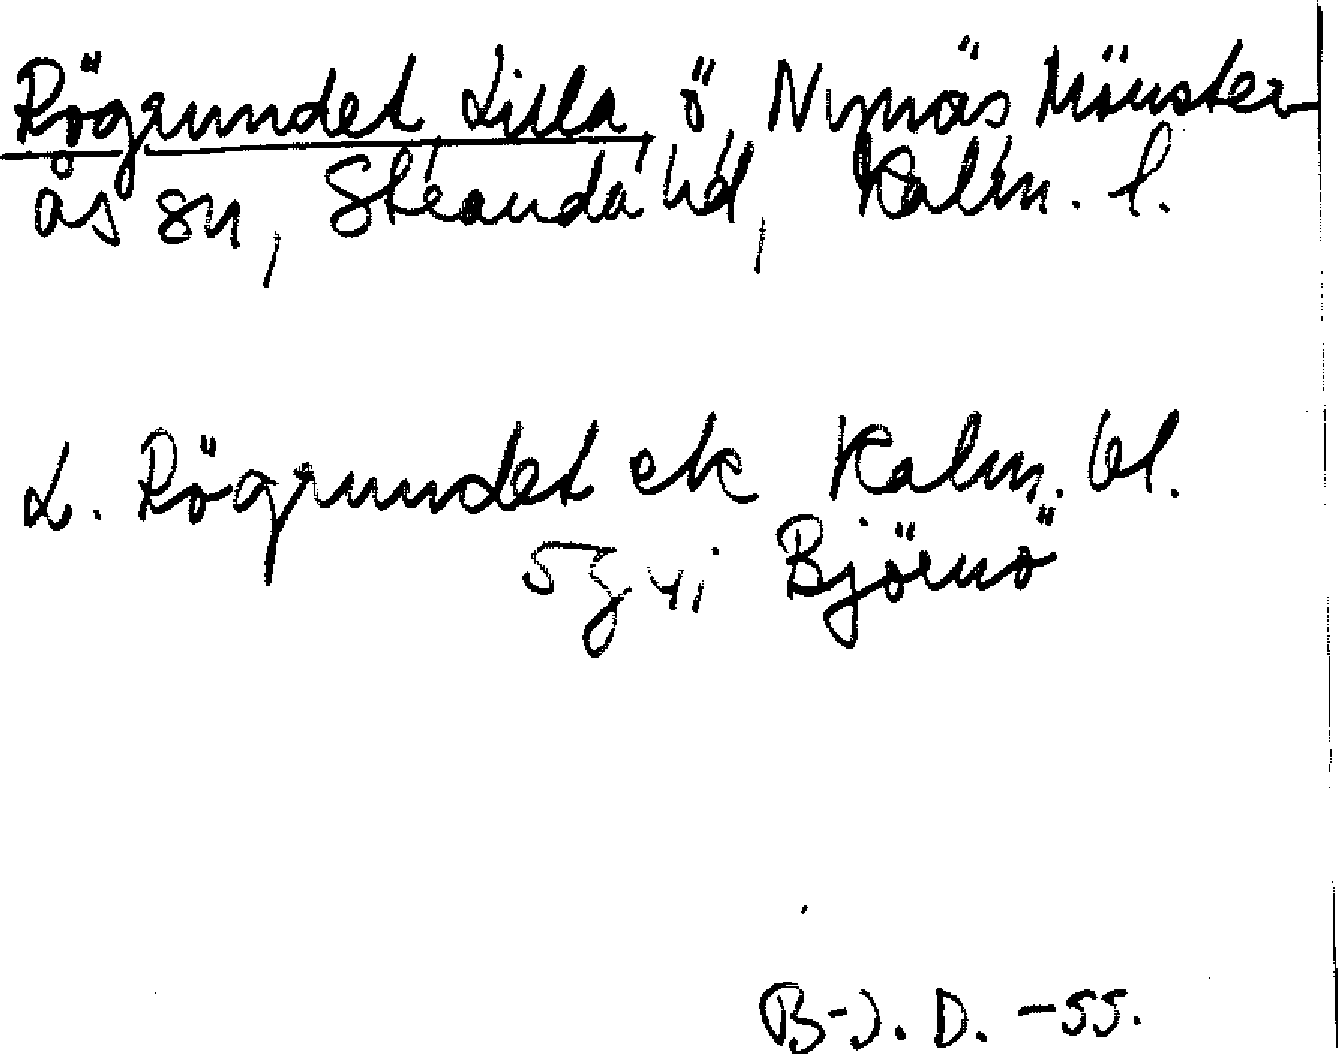 Rögrundet, Lilla, ö, Nynäs Mönster-
ås sn, Stranda hd, Kalm. l.
L. Rögrundet ek Kalm. bl.
5g vi Björnö
B-J. D. -55.